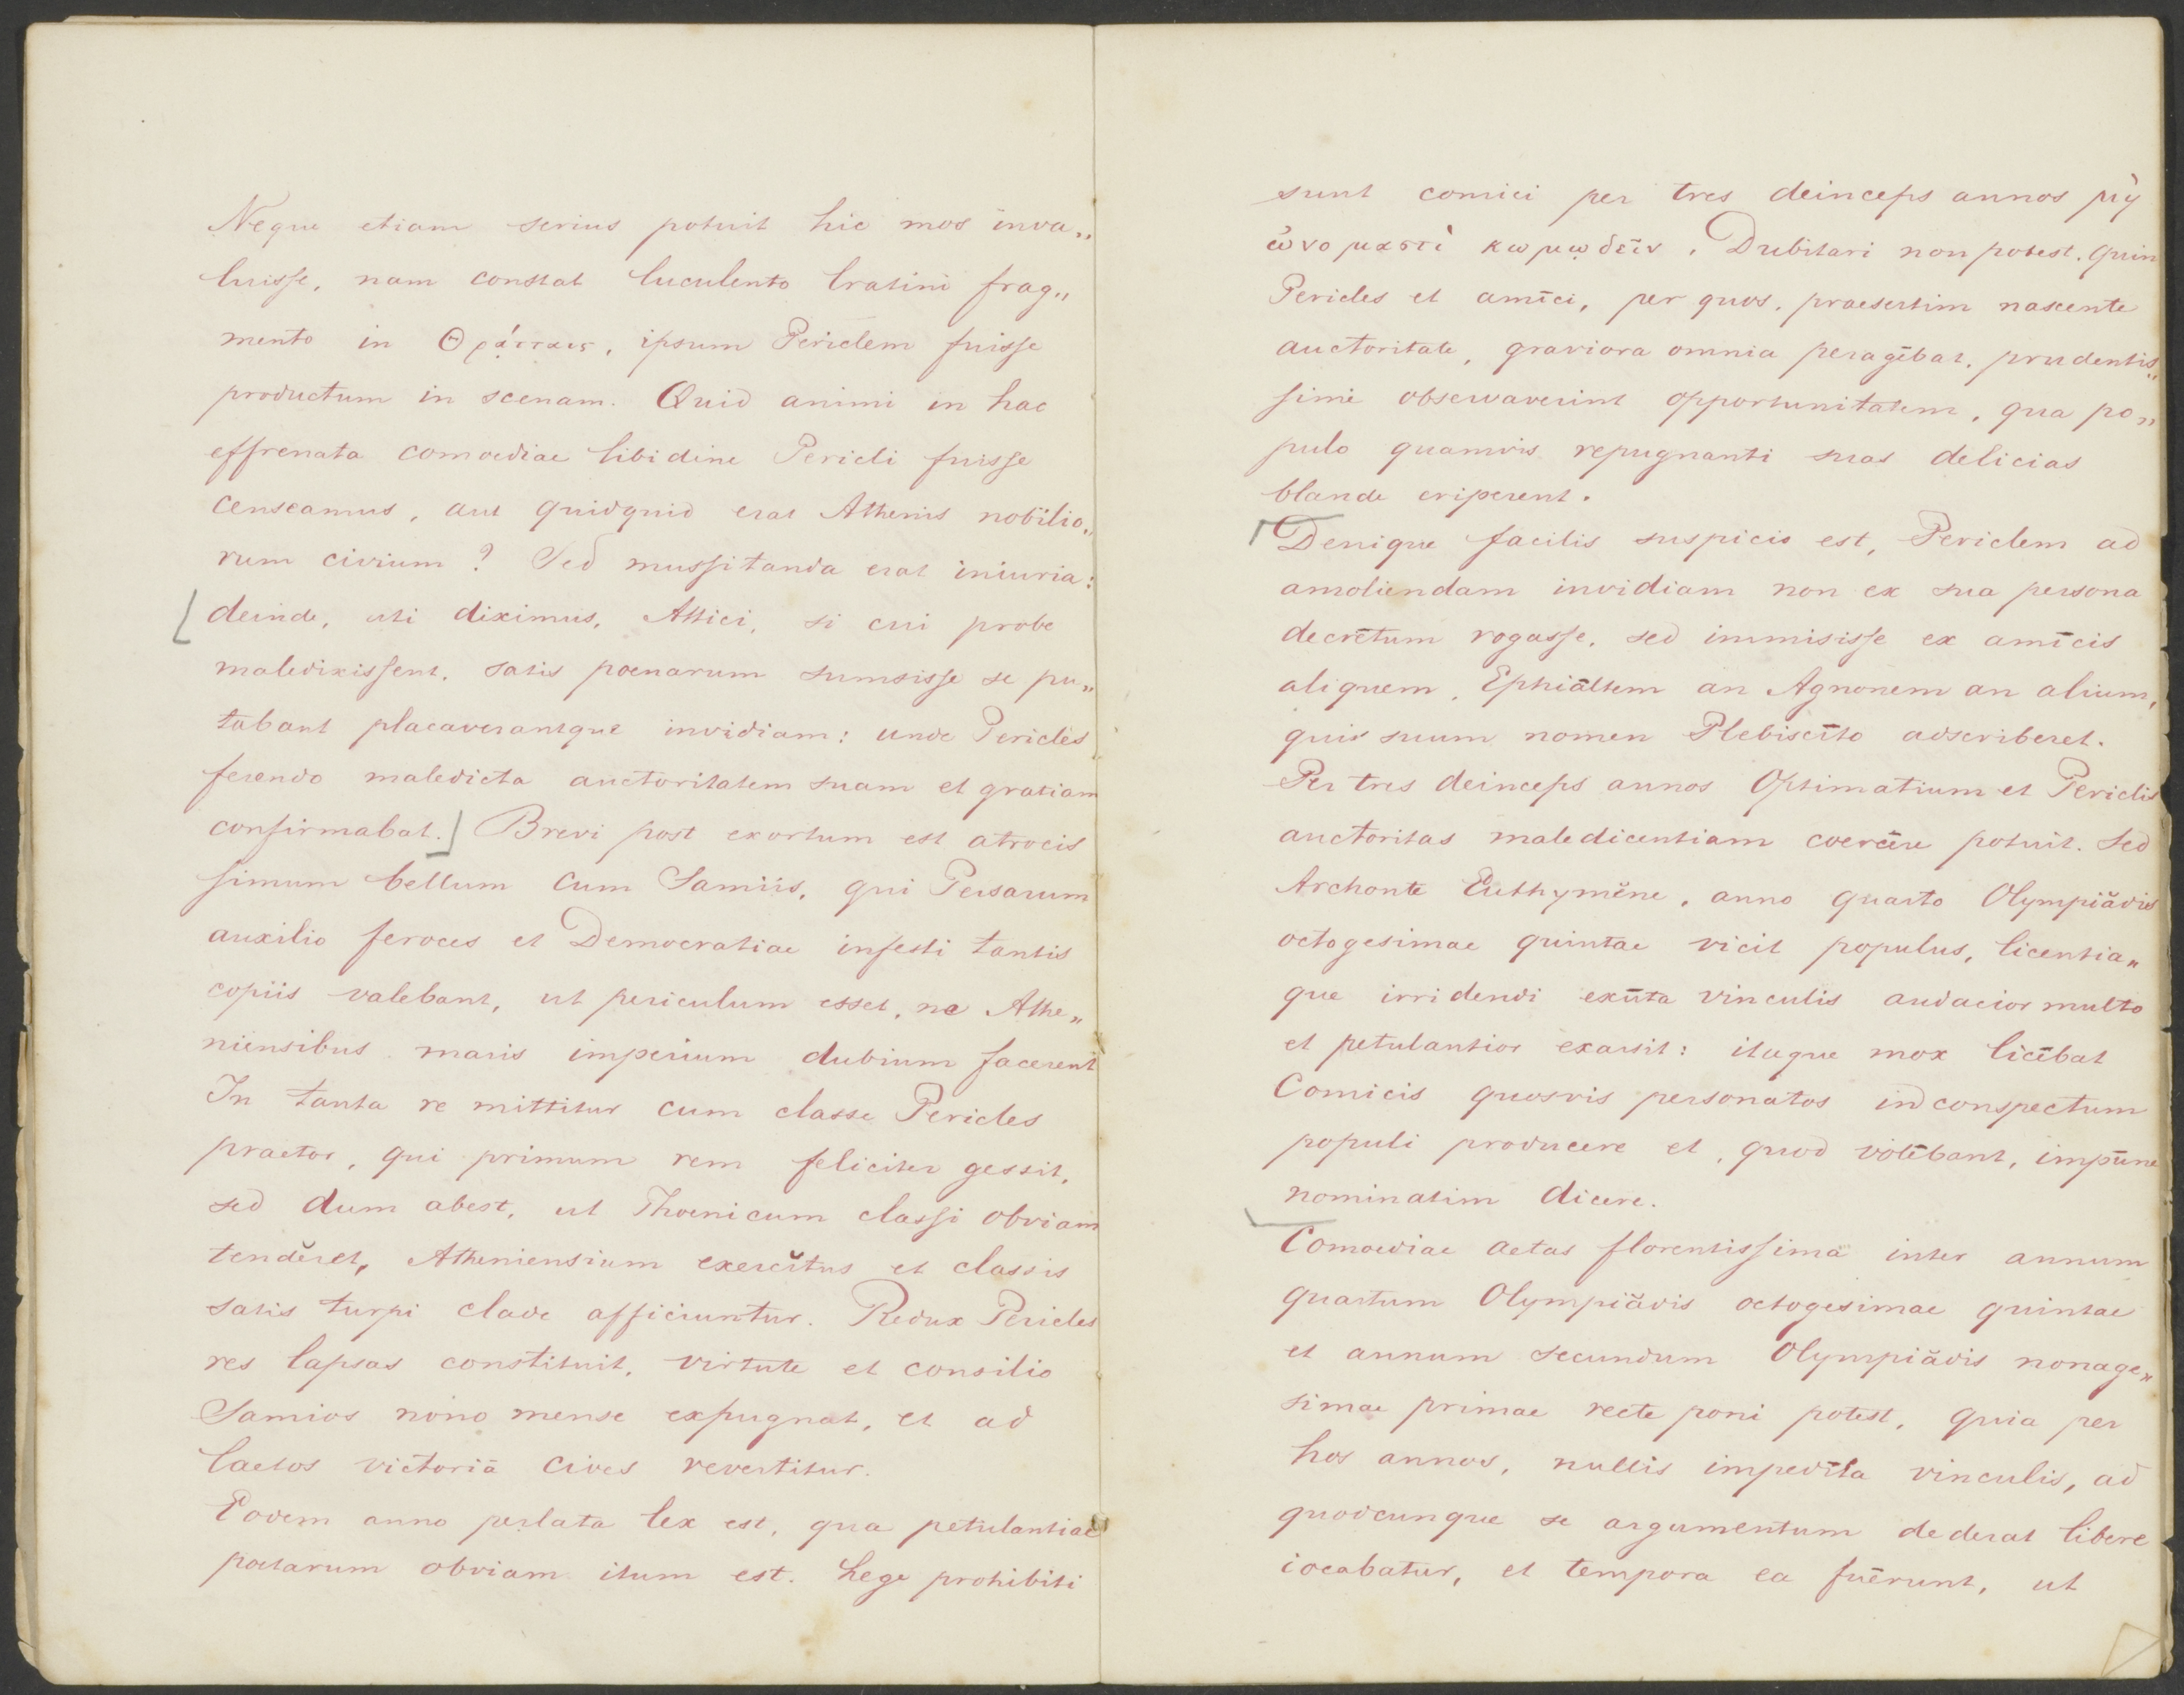 Neque etiam serius potuit hic mos inva„
luisse, nam constat luculento Cratini frag„
mento in Θρᾴτταις, ipsum Periclem fuisse
productum in scenam. Quid animi in hac
effrenata comoediae libidine Pericli fuisse
censeamus, aut quidquid erat Athenis nobilio„
rum civium? Sed mussitanda erat iniuria:
[deinde, uti diximus, Attici, si cui probe
maledixissent, satis poenarum sumsisse se pu„
tabant placaverantque invidiam: unde Pericles
ferendo maledicta auctoritatem suam et gratiam
confirmabat.] Brevi post exortum est atrocis
simum bellum cum Samiis, qui Persarum
auxilio feroces et Democratiae infesti tantis
copiis valebant, ut periculum esset, ne Athe„
niensibus maris imperium dubium facerent
In tanta re mittitur cum classe Pericles
praetor, qui primum rem feliciter gessit,
sed dum abest, ut Phoenicum classi obviam
tendĕret, Atheniensium exercĭtus et classis
satis turpi clade afficiuntur. Redux Pericles
res lapsas constituit, virtute et consilio
Samios nono mense expugnat, et ad
laetos victoriā cives revertitur.
Eodem anno perlata lex est, qua petulantiae
poetarum obviam itum est. Lege prohibiti
sunt comici per tres deinceps annos μὴ
ὠνομαστὶ κωμῳδεῖν. Dubitari non potest, quin
Pericles et amīci, per quos, praesertim nascente
auctoritate, graviora omnia peragēbat, prudentis„
sime observaverint opportunitatem, qua po„
pulo quamvis repugnanti suas delicias
blande eriperent.
[Denique facilis suspicio est, Periclem ad
amoliendam invidiam non ex sua persona
decrētum rogasse, sed immisisse ex amīcis
aliquem, Ephiāltem an Agnonem an alium,
quis suum nomen Plebiscīto adscriberet.
Per tres deinceps annos Optimatium et Periclis
auctoritas maledicentiam coercēre potuit. Sed
Archonte Euthymĕne, anno quarto Olympiădis
octogesimae quintae vicit populus, licentia„
que irridendi exūta vinculis audacior multo
et petulantior exarsit: itaque mox licēbat
Comicis quosvis personatos in conspectum
populi producere et, quod volēbant, impūne
nominatim dicere.
Comoediae aetas florentissima inter annum
quartum Olympiădis octogesimae quintae
et annum secundum Olympiădis nonage„
simae primae recte poni potest, quia per
hos annos, nullis impedīta vinculis, ad
quodcunque se argumentum dederat libere
iocabatur, et tempora ea fuērunt, ut